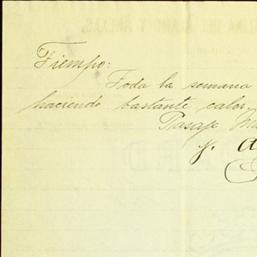 Tiempo:
Toda la semana
haciendo bastante calor
Pasaje
y.